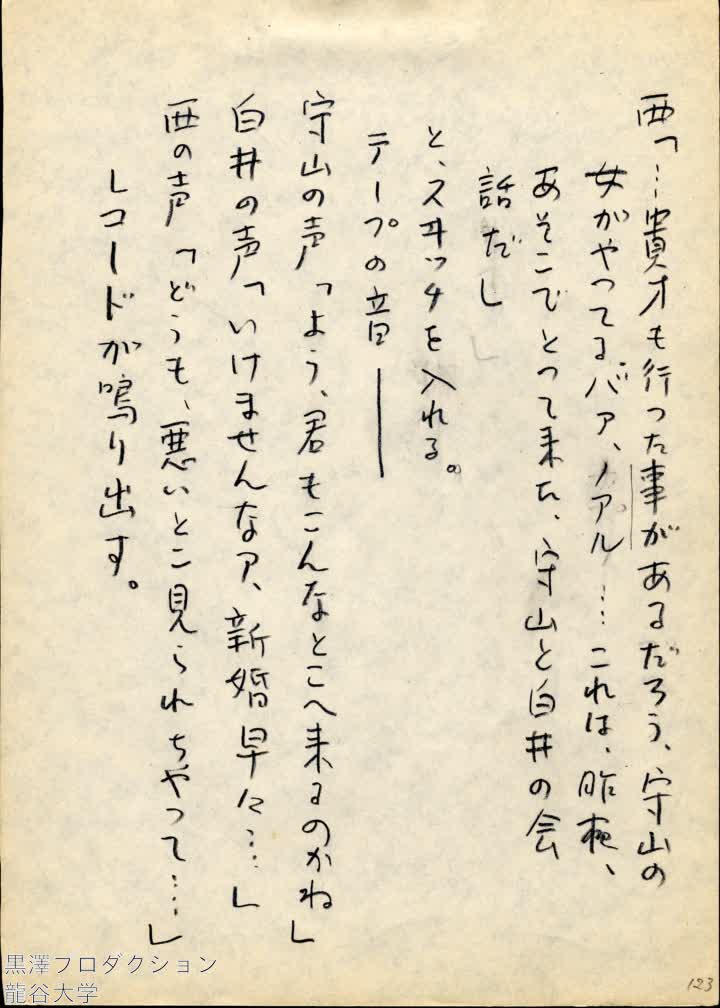 西「…貴才も行った事があるだろう、守山の
女がやってるバァ、ノアル…これは、昨夜、
あそこでとって来た、守山と白井の会
話だ」
と、スヰッチを入れる。
テープの音――
守山の声「よう、君もこんなとこへ来るのかね」
白井の声「いけませんなア、新婚早々…」
西の声「どうも、悪いとこ見られちゃって…」
レコードが鳴り出す。
123
黒澤プロダクション
龍谷大学